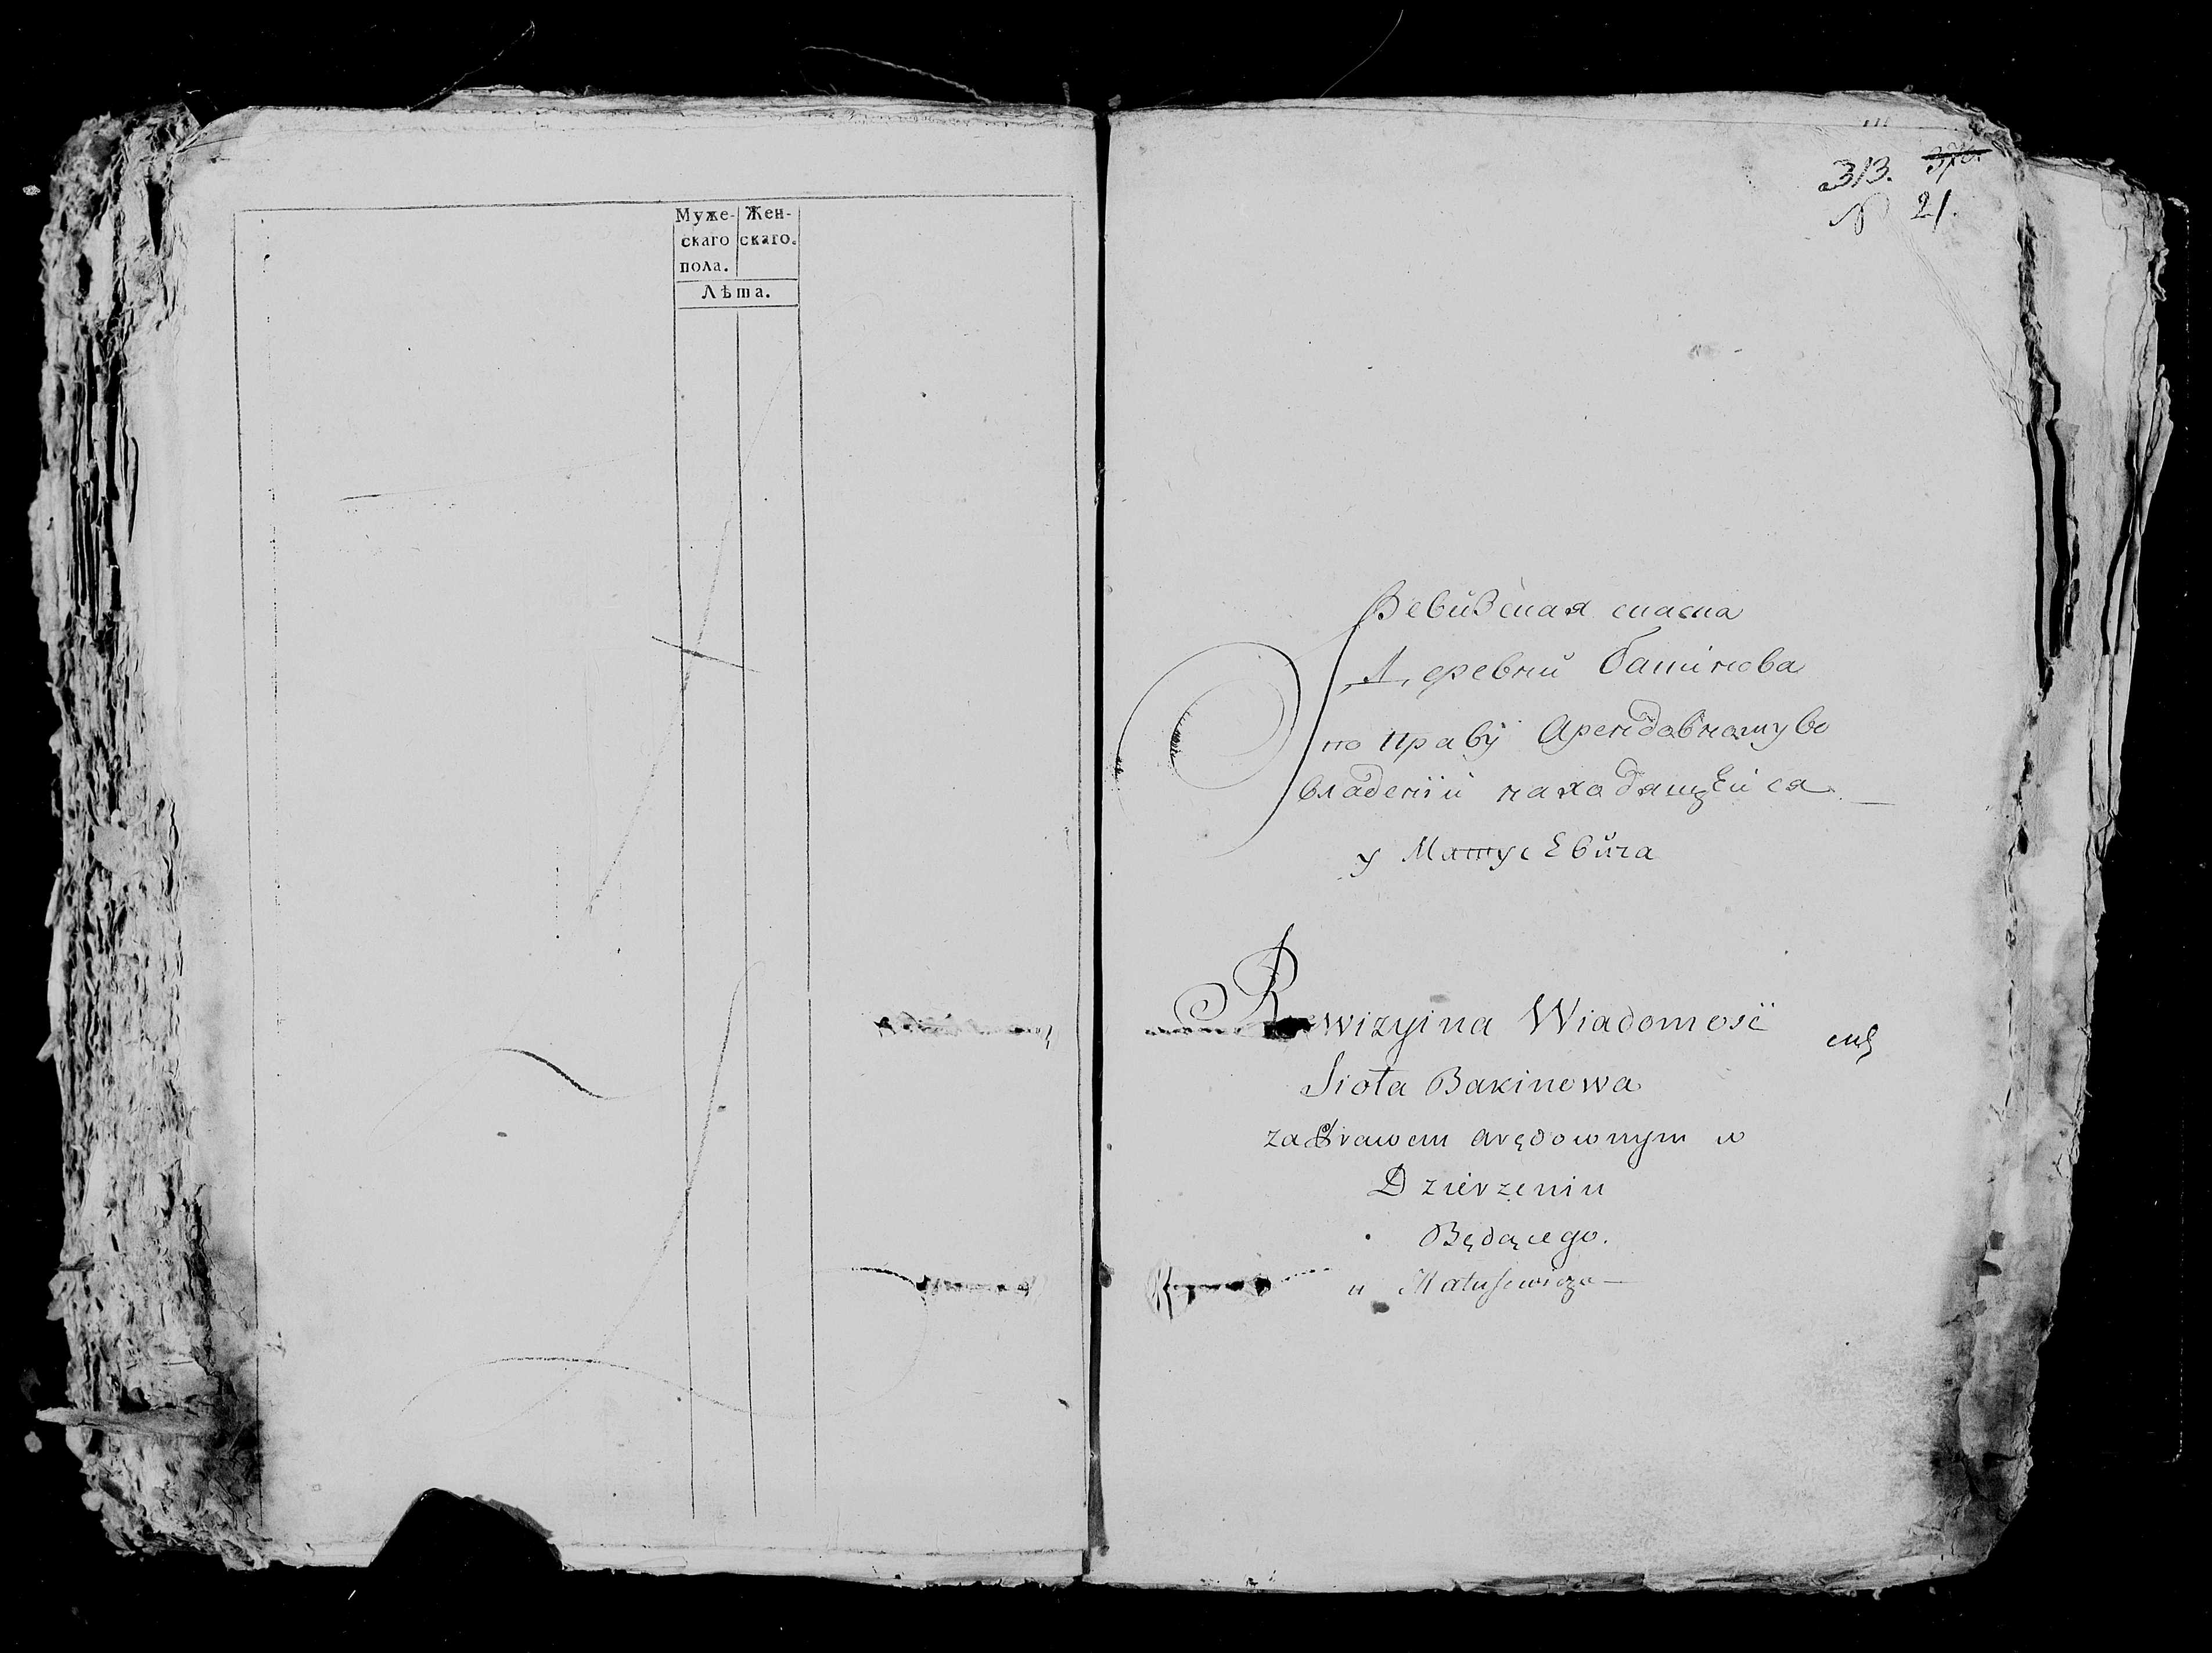 Муже- Жен-
скаго скаго.
пола.
Лѣта.
313.
№ 21.
Ревизская
Деревни
по праву Арендовному во
владении находящейся
у Матусевича
Rewizyina Wiadomość
Sioła Bakinowa
za Prawem arędownym w
Dzierzeniu
Będącego.
u Matusewicza